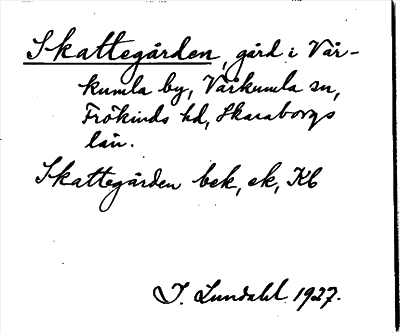 Skattegården, gård i Vår-
kumla by, Vårkumla sn,
Frökinds hd, Skaraborgs
län.
Skattegården bek, ek, Kb
I. Lundahl 1927.